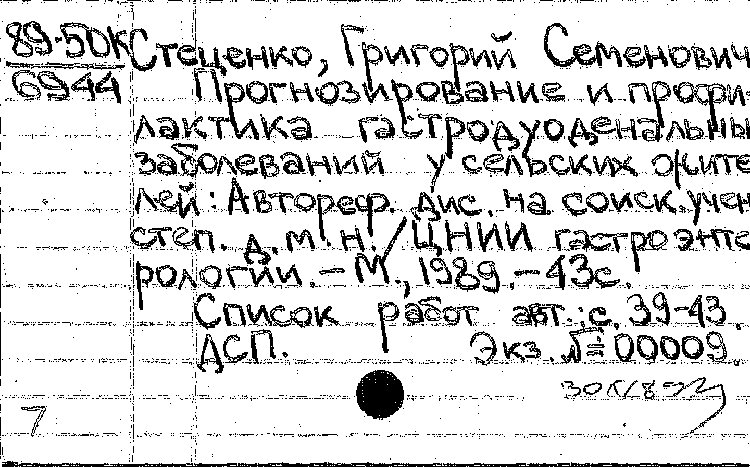 89-50К Стеценко, Григорий Семенович
6944 Прогнозирование и профи-
лактика гастродуоденальны
заболеваний у сельских жите
лей: Автореф. дис. на соиск. учен
степ. д. м. н. / ЦНИИ гастроэнте
рологии. – М., 1989. – 43с.
Список работ авт.: с. 39-43.
ДСП. Экз. № 00009.
7